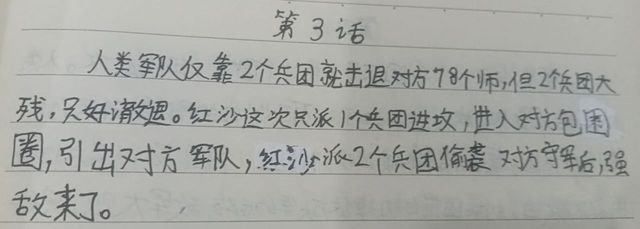 第3话
人类军队仅靠2个兵团就击退对方78个师,但2个兵团大
残,只好撤退。红沙这次只派1个兵团进攻,进入对方包围
圈,引出对方军队,红沙派2个兵团偷袭对方守军后,强
敌来了。